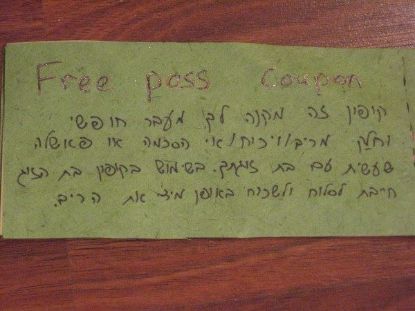 Free pass Coupon
קופון זה מקנה לך מעבר חופשי
וחלק מריב/ויכוח/אי הסכמה או פאשלה
שעשית עם בת זוגתך. בשימוש בקופון בת הזוג
חייבת לסלוח ולשכוח באופן מידי את הריב.